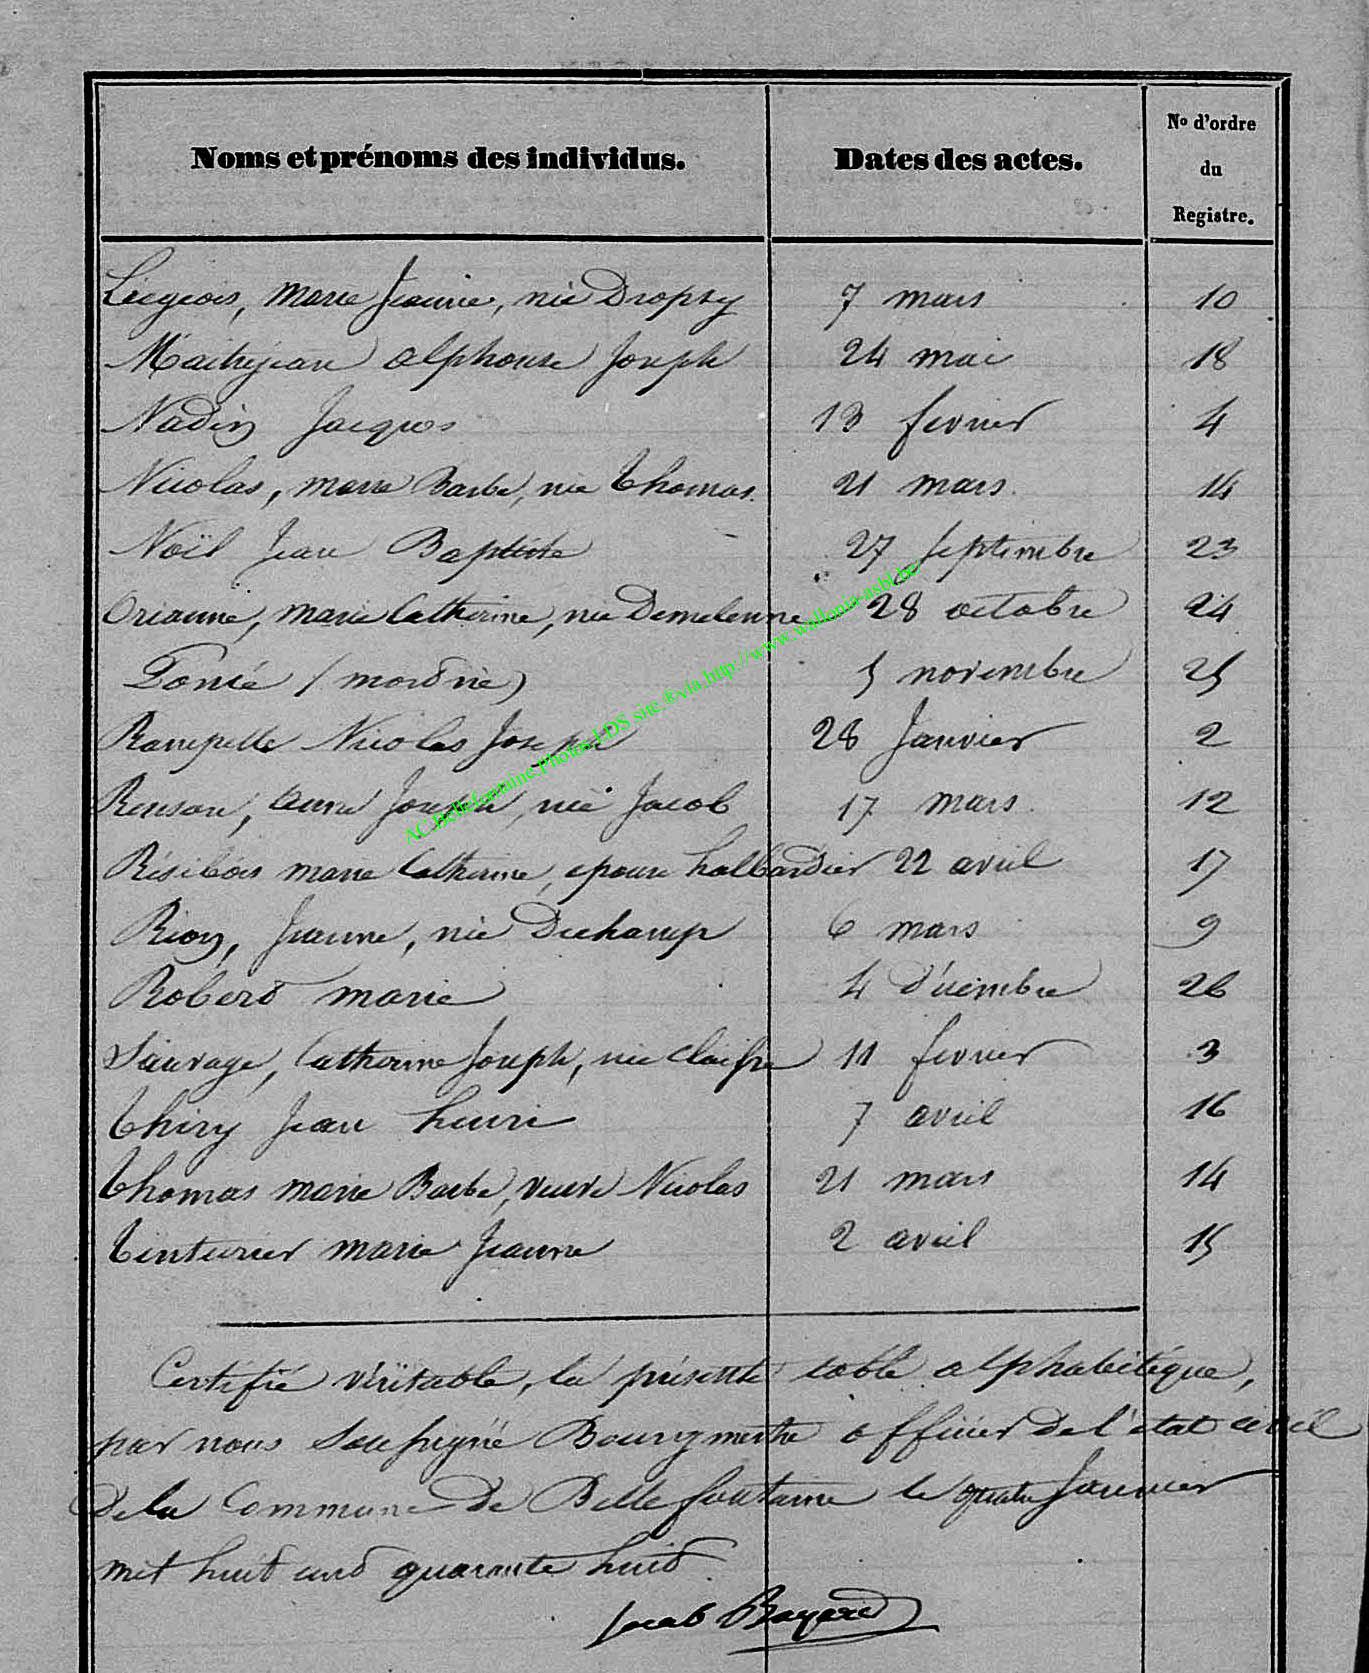 Noms et prénoms des individus. Dates des actes. No d'ordre du Registre.
Liegeois, Marie Jeanne, née Dropsy 7 mars 10
Maitrejean Alphonse Joseph 24 mai 18
Nadin Jacques 13 fevrier 4
Nicolas, marie Barbe, née Thomas. 21 mars. 14
Noël Jean Baptiste 27 septembre 23
Orianne, marie Catherine, née Demelenne 28 octobre 24
Poncé (mort né) 5 novembre 25
Rampelle Nicolas Joseph 28 Janvier 2
Renson, Anne Joseph, née Jacob 17 mars. 12
Résibois marie Catherine, epouse halbardier 22 avril 17
Rion, Jeanne, née Dechamp 6 mars 9
Robert marie 4 décembre 26
Sauvage, Catherine Joseph, née Claisse 11 fevrier 3
Thiry Jean henri 7 avril 16
Thomas marie Barbe, veuve Nicolas 21 mars 14
Tinturier marie Jeanne 2 avril 15
Certifié véritable, la présente table alphabétique,
par nous Soussigné Bourgmestre officier de l'état civil
de la Commune de Bellefontaine le quatre Janvier
mil huit cent quarante huit.
Jacob Bayard
AC.Bellefontaine.Photos LDS site ®via http://www.wallonia-asbl.be